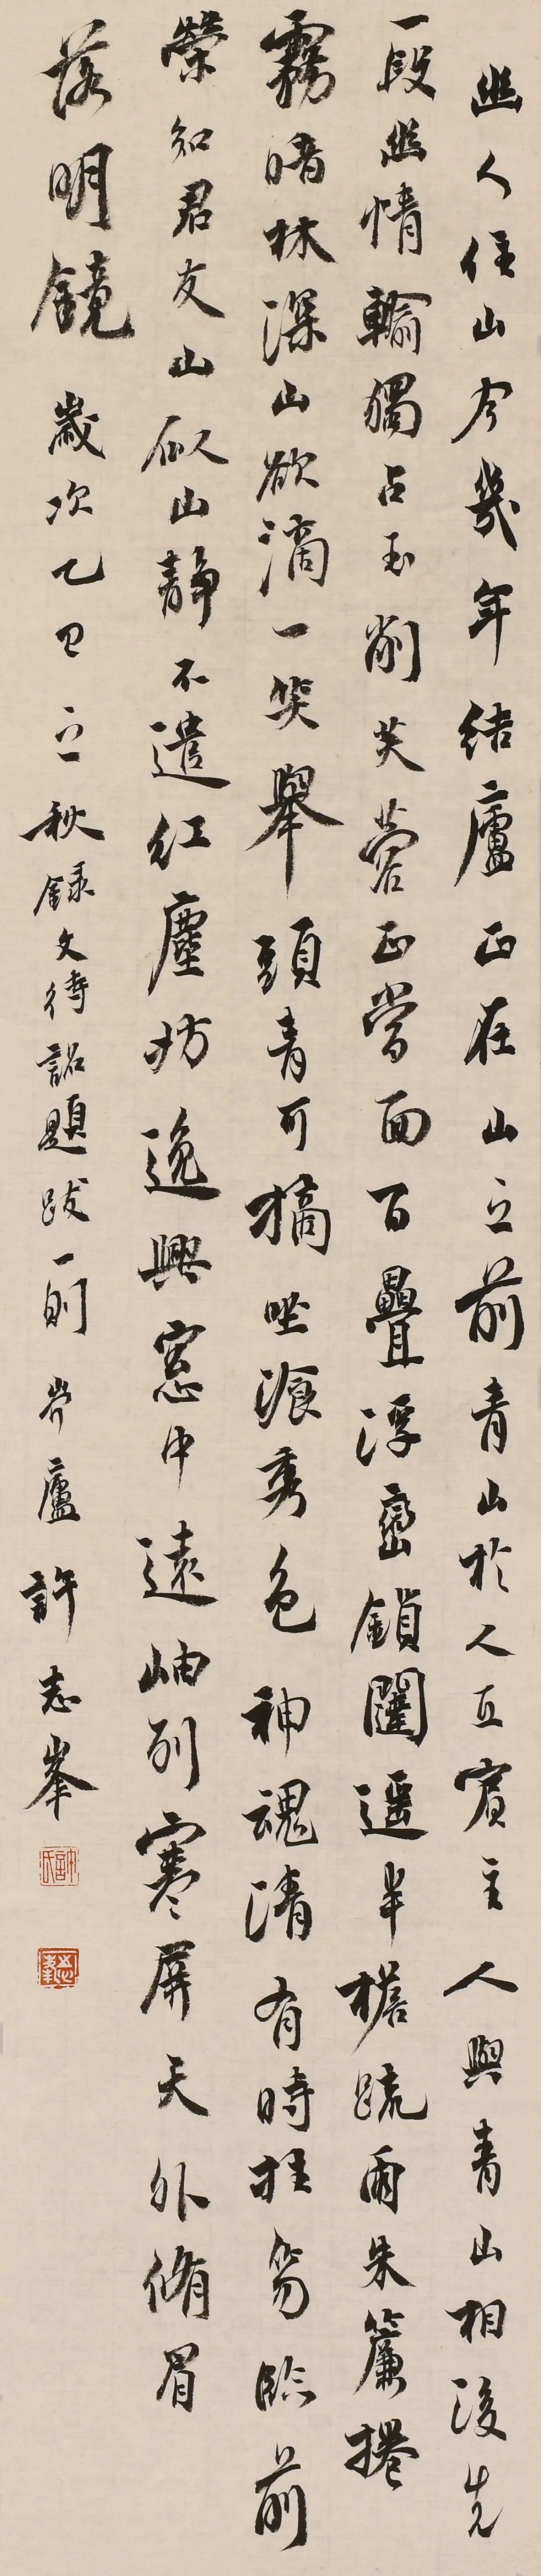 幽人住山今幾年結廬正在山之前青山於人互賓主人與青山相後先
一段幽情輸獨占玉削芙蓉正當面百疊浮巒鎖闥遥半檐疏雨朱簾捲
霧暗林深山欲滴一笑舉頭青可摘坐飡秀色神魂清有時拄笏臨前
榮知君友山似山静不遣紅塵妨逸興窓中遠岫列寒屏天外脩眉
落明鏡 歲次乙巳之秋録文待詔題跋一則 岕廬許志峯
許氏
志峯